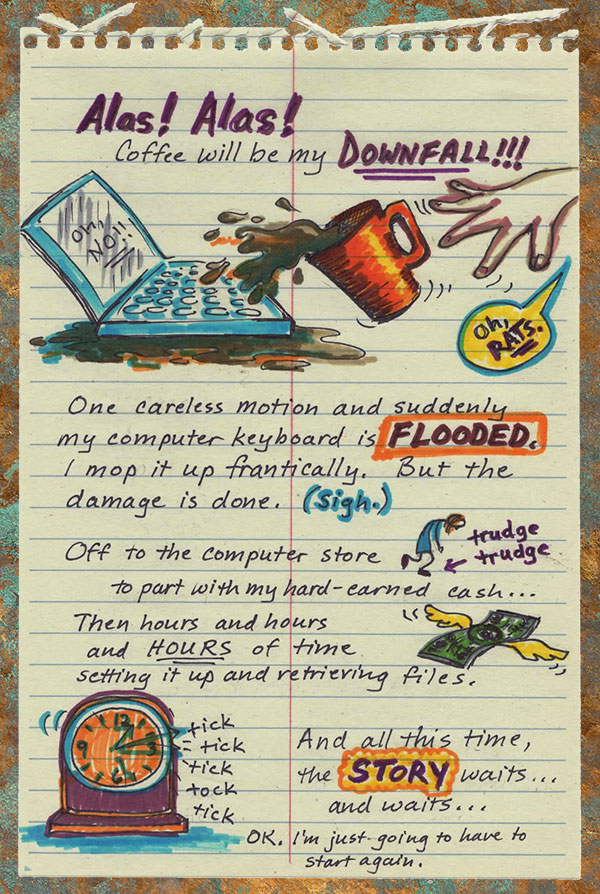 Alas! Alas!
Coffee will be my DOWNFALL!!!
Oh, NO!!!
Oh, RATS.
One careless motion and suddenly
my computer keyboard is FLOODED.
I mop it up frantically. But the
damage is done. (Sigh.)
Off to the computer store
trudge
trudge
to part with my hard-earned cash...
Then hours and hours
and HOURS of time
setting it up and retrieving files.
12
3
6
9
tick
tick
tick
tock
tick
And all this time,
the STORY waits...
and waits...
OK. I'm just going to have to
start again.